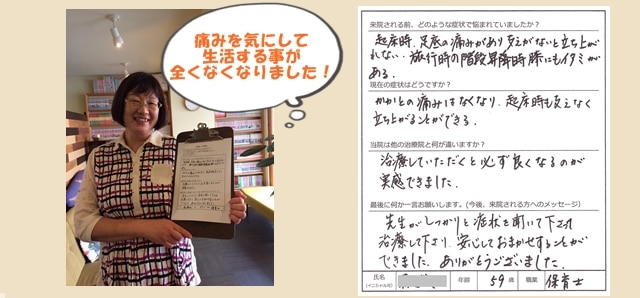 痛みを気にして
生活する事が
全くなくなりました!
来院される前、どのような症状で悩まれていましたか?
起床時、足底の痛みがあり支えがないと立ち上が
れない。旅行時の階段昇降時膝にもイタミが
ある。
現在の症状はどうですか?
かかとの痛みはなくなり、起床時も支えなく
立ち上がることができる。
当院は他の治療院と何が違いますか?
治療していただくと必ず良くなるのが
実感できました。
最後に何か一言お願いします。(今後、来院される方へのメッセージ)
先生がしっかりと症状を聞いて下さり
治療して下さり、安心しておまかせすることが
できました。ありがとうございました。
氏名 年齢 59歳 職業 保育士
(イニシャル可)